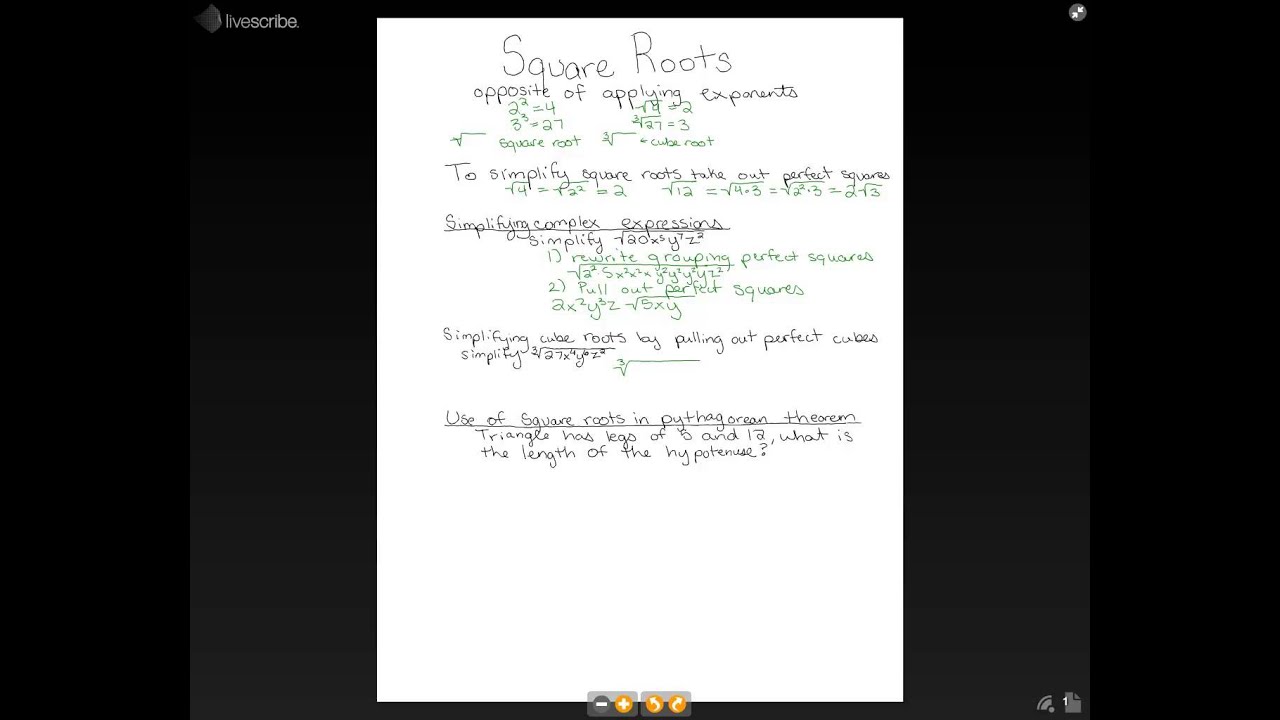 livescribe.
Square Roots
opposite of applying exponents
2² = 4 √4 = 2
3³ = 27 ∛27 = 3
√ square root ∛ ← cube root
To simplify square roots take out perfect squares
√4 = √2² = 2 √12 = √4•3 = √2²•3 = 2√3
Simplifying complex expressions
Simplify √20x⁵y⁷z²
1) rewrite grouping perfect squares
√2²•5x²x²x y²y²y²yz²
2) Pull out perfect squares
2x²y³z √5xy
Simplifying cube roots by pulling out perfect cubes
simplify ∛27x⁴y⁶z² ∛
Use of square roots in pythagorean theorem
Triangle has legs of 5 and 12, what is
the length of the hypotenuse?
1